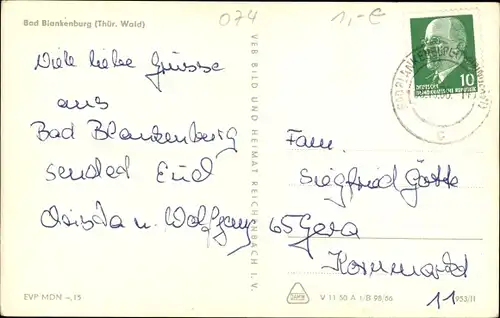 Bad Blankenburg (Thür. Wald)
074
1,-€
Viele liebe Grüsse
aus
Bad Blankenberg
sendet Euch
u. Wolfgang
VEB BILD UND HEIMAT REICHENBACH I. V.
10
DEUTSCHE
DEMOKRATISCHE REPUBLIK
Fam.
Siegfried Götte
65 Gera
Kornmarkt
11
EVP MDN –,15
V 11 50 A 1/B 98/66
953/II